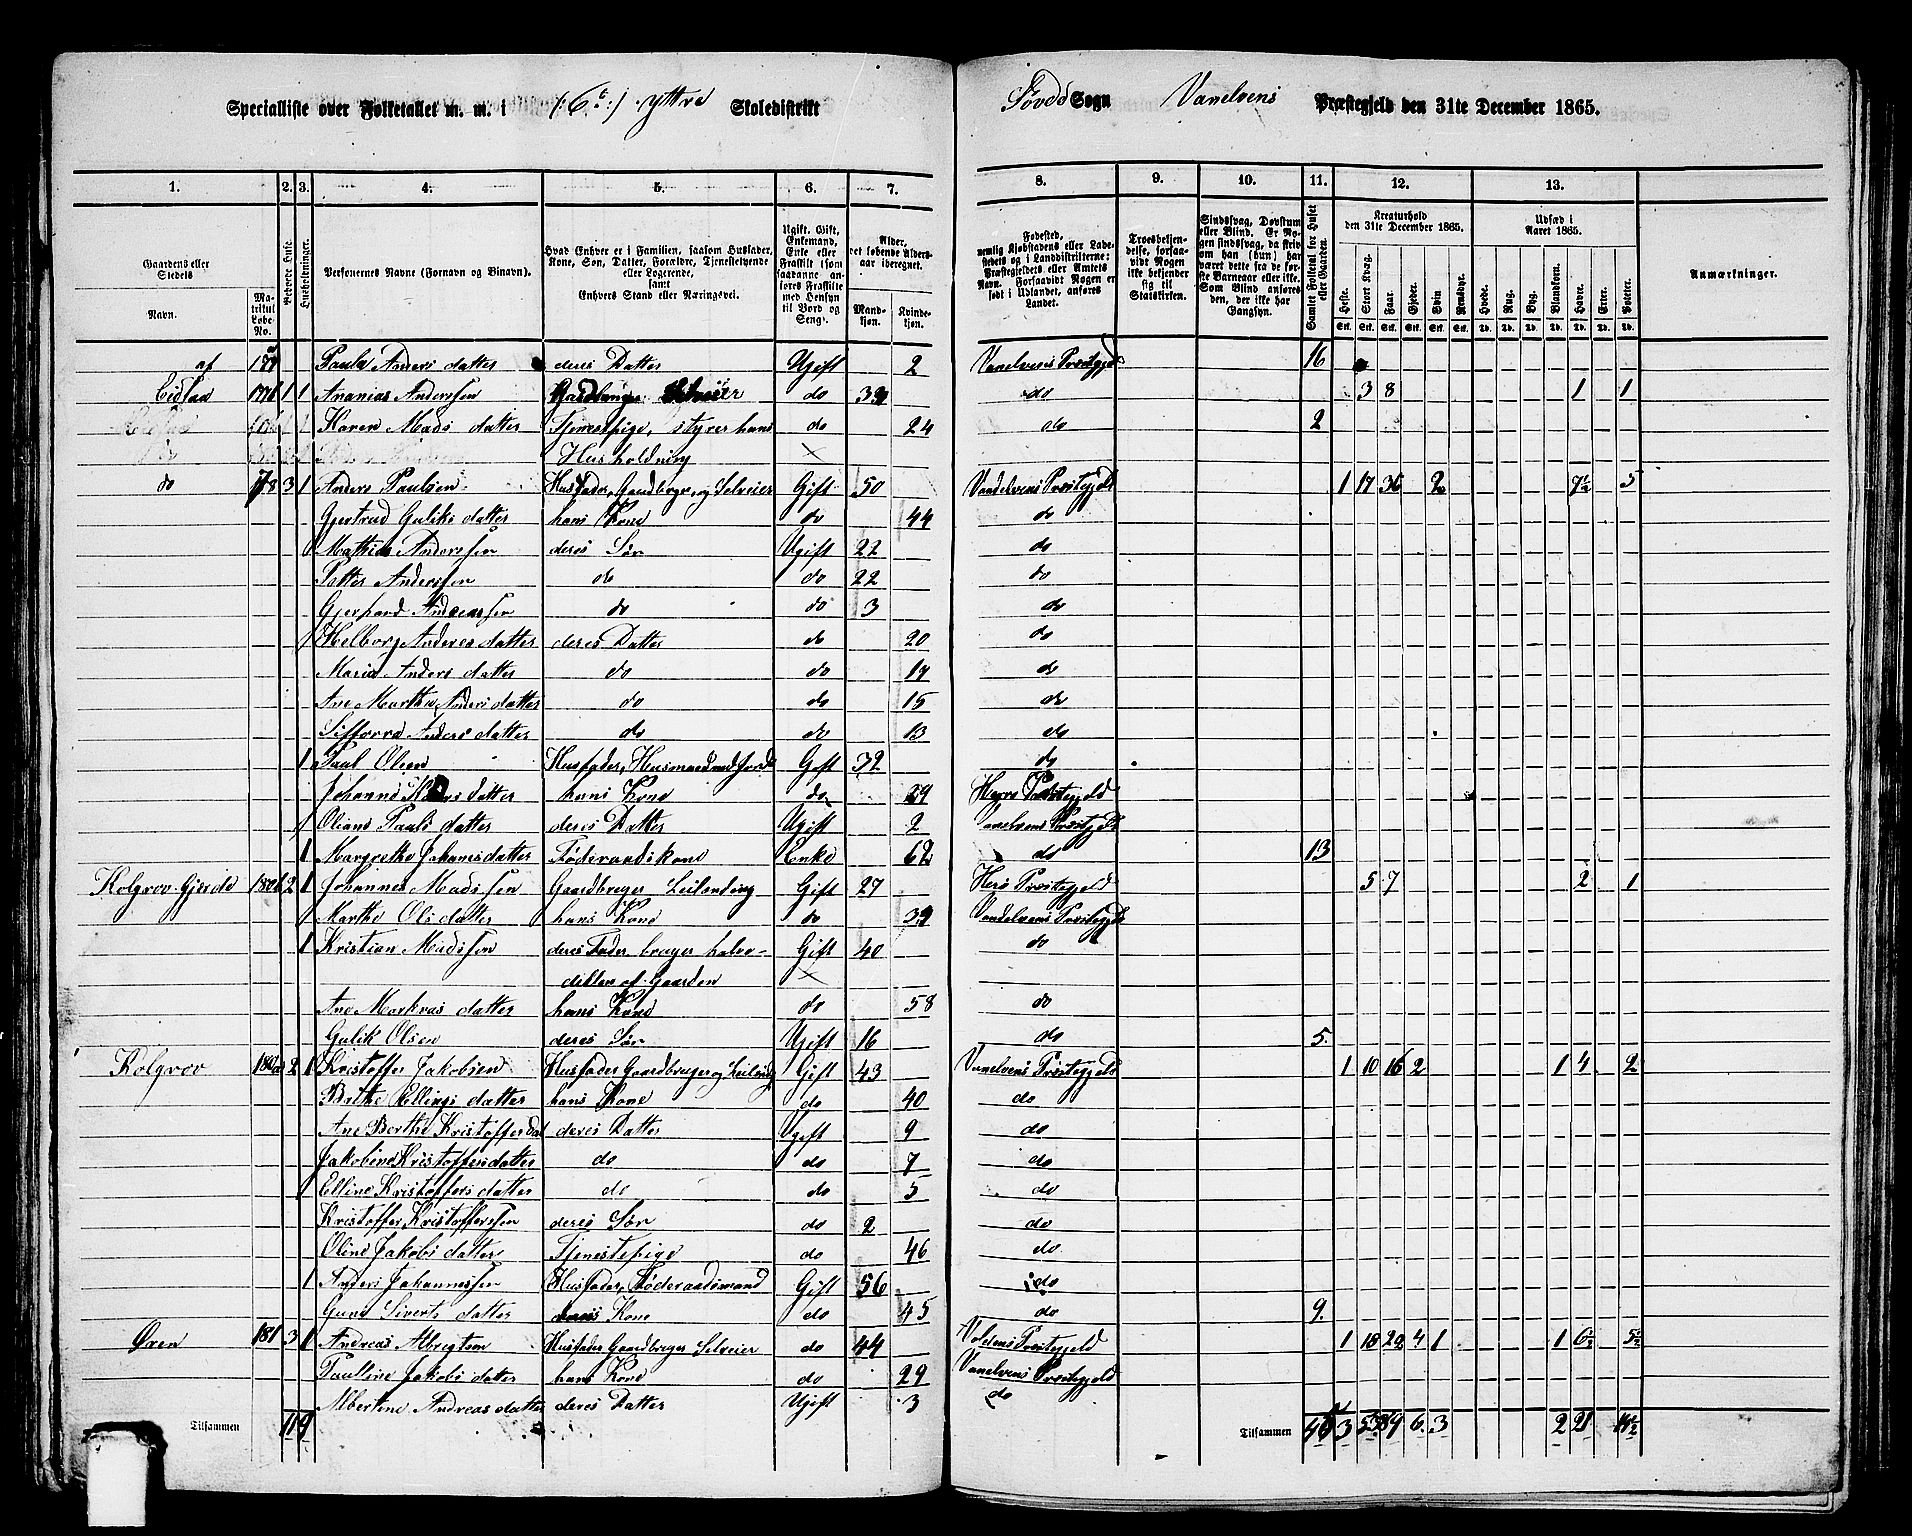 Specialliste over Folketallet m. m. i /:6te:/ yttre Skoledistrikt Søvde Sogn Vanelvens Præstegjeld den 31te December 1865.
1. 2. 3. 4. 5. 6. 7. 8. 9. 10. 11. 12. 13.
Gaardens eller Stedets Navn. Matrikul Løbe-No. Beboede Huse. Husholdninger. Personernes Navne (Fornavn og Binavn). Hvad Enhver er i Familien, saasom Husfader, Kone, Søn, Datter, Forældre, Tjenestetyende eller Logerende, samt Enhvers Stand eller Næringsvei. Ugift, Gift, Enkemand, Enke eller Fraskilt Alder, det løbende Aldersaar iberegnet. Mandkjøn. Kvindekjøn.
Fødested, Samlet Folketal for Huset eller Gaarden. Kreaturhold den 31te December 1865. Udsæd i Aaret 1865. Anmærkninger.
Heste. Stort Kvæg. Faar. Gjeder. Svin. Rensdyr. Hvede. Rug. Byg. Blandkorn. Havre. Erter. Poteter.
af Paula Anders datter deres Datter Ugift 2 Vanelvens Præstegjeld 16
Eidsaa 1 1 Ananias Anderssen do 39 do 3 8 1 1
Karen Mads datter Tjenestpige, styrer hans do 24 do 2
Husholdning
do 3 1 Anders Paulsen Husfader, Gaardbruger og Selveier Gift 50 Vandelvens Præstegjeld 1 17 36 2 7½ 5
Gjertrud Guliks datter hans Kone do 44 do
Mathias Anderssen deres Søn Ugift 22 do
Petter Anderssen do do 22 do
Gjerhard Andreassen do do 3 do
Helborg Anderes datter deres Datter do 20 do
Maria Anders datter do do 17 do
Ane Martha Anders datter do do 15 do
Anders datter do do 13 do
1 Paul Olsen Husfader, Husmand med Jord Gift 32 do
Johanne datter hans Kone do 29 Herrø Præstegjeld
Oliane Pauls datter deres Datter Ugift 2 Vanelvens Præstegjeld
1 Margrethe Johannesdatter Føderaadskone Enke 62 do 13
Kolgrov Gjerde 2 1 Johannes Madssen Gaardbruger Leilending Gift 27 Herø Præstegjeld 5 7 2 1
Marthe Ols datter hans Kone do 39 Vandelvens Præstegjeld
1 Kristian Madssen deres Fader bruger halv- Gift 40 do
delen af Gaarden
Ane Markras datter hans Kone do 58 do
Gulik Olsen deres Søn Ugift 16 do 5.
Kolgrov 2 1 Kristoffer Jakobsen Husfader Gaardbruger og Leilending Gift 43 Vanelvens Præstegjeld 1 10 16 2 1 4 2
Berthe Ellings datter hans Kone do 40 do
Ane Berthe Kristoffersdat deres Datter Ugift 9 do
Jakobine Kristoffersdatter do do 7 do
Elline Kristoffers datter do do 5 do
Kristoffer Kristofferssen deres Søn do 2 do
Oline Jakobs datter Tjenestepige do 46 do
1 Anders Johannessen Husfader, Føderaadsmand Gift 56 do
Gune Siverts datter Kone do 45 do 9.
Øren 181 3 1 Andreas Albregtsen Husfader Gaardbruger Selveier do 44 Voldens Præstegjeld 1 18 22 4 1 1 6½ 5½
Pauline Jakobs datter hans Kone do 29 Vanelvens Præstegjeld
Albertine Andreas datter deres Datter Ugift 3 do
Tilsammen 11 9 Tilsammen 3 53 89 6. 3 2 21